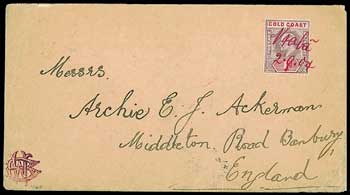 GOLD COAST
Messrs.
Archie E. J. Ackerman
Middleton Road Banbury
England